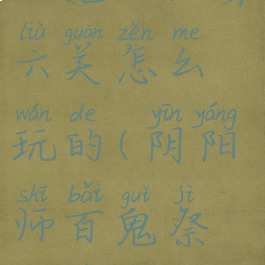 liù guān zěn me
六关怎么
wán de yīn yáng
玩的(阴阳
shī bǎi guǐ jì
师百鬼祭